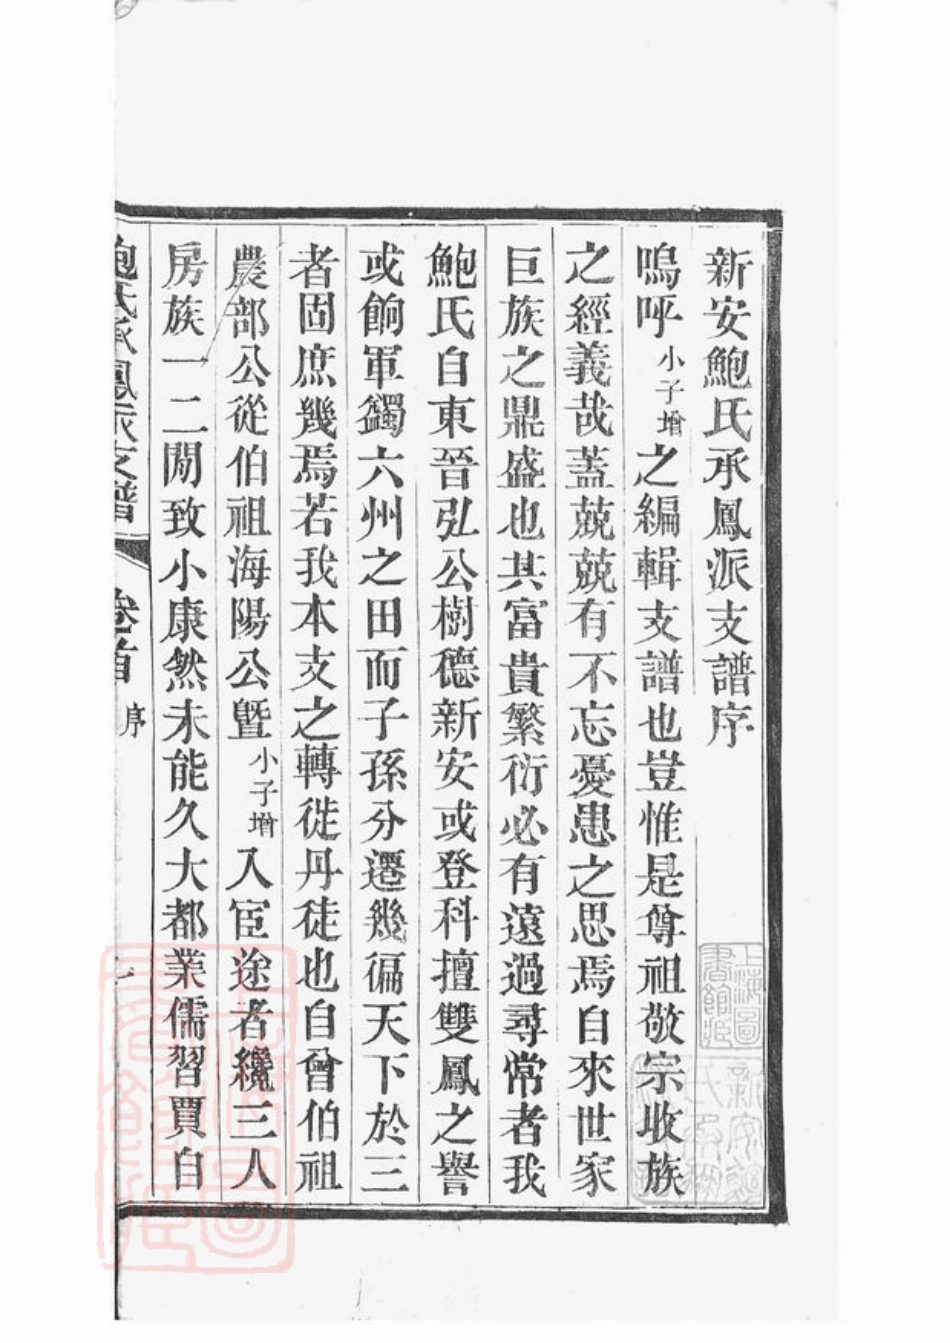 新安鮑氏承鳳派支譜序
嗚呼小子增之編輯支譜也豈惟是尊祖敬宗收族
之經義哉蓋兢兢有不忘憂患之思焉自來世家
巨族之鼎盛也其富貴繁衍必有遠過尋常者我
鮑氏自東晉弘公樹德新安或登科擅雙鳳之譽
或餉軍蠲六州之田而子孫分遷幾徧天下於三
者固庶幾焉若我本支之轉徙丹徒也自曾伯祖
農部公從伯祖海陽公暨小子增入宦途者纔三人
房族一二閒致小康然未能久大都業儒習賈自
鮑氏承鳳派支譜 卷首 序 一
上海圖書館藏